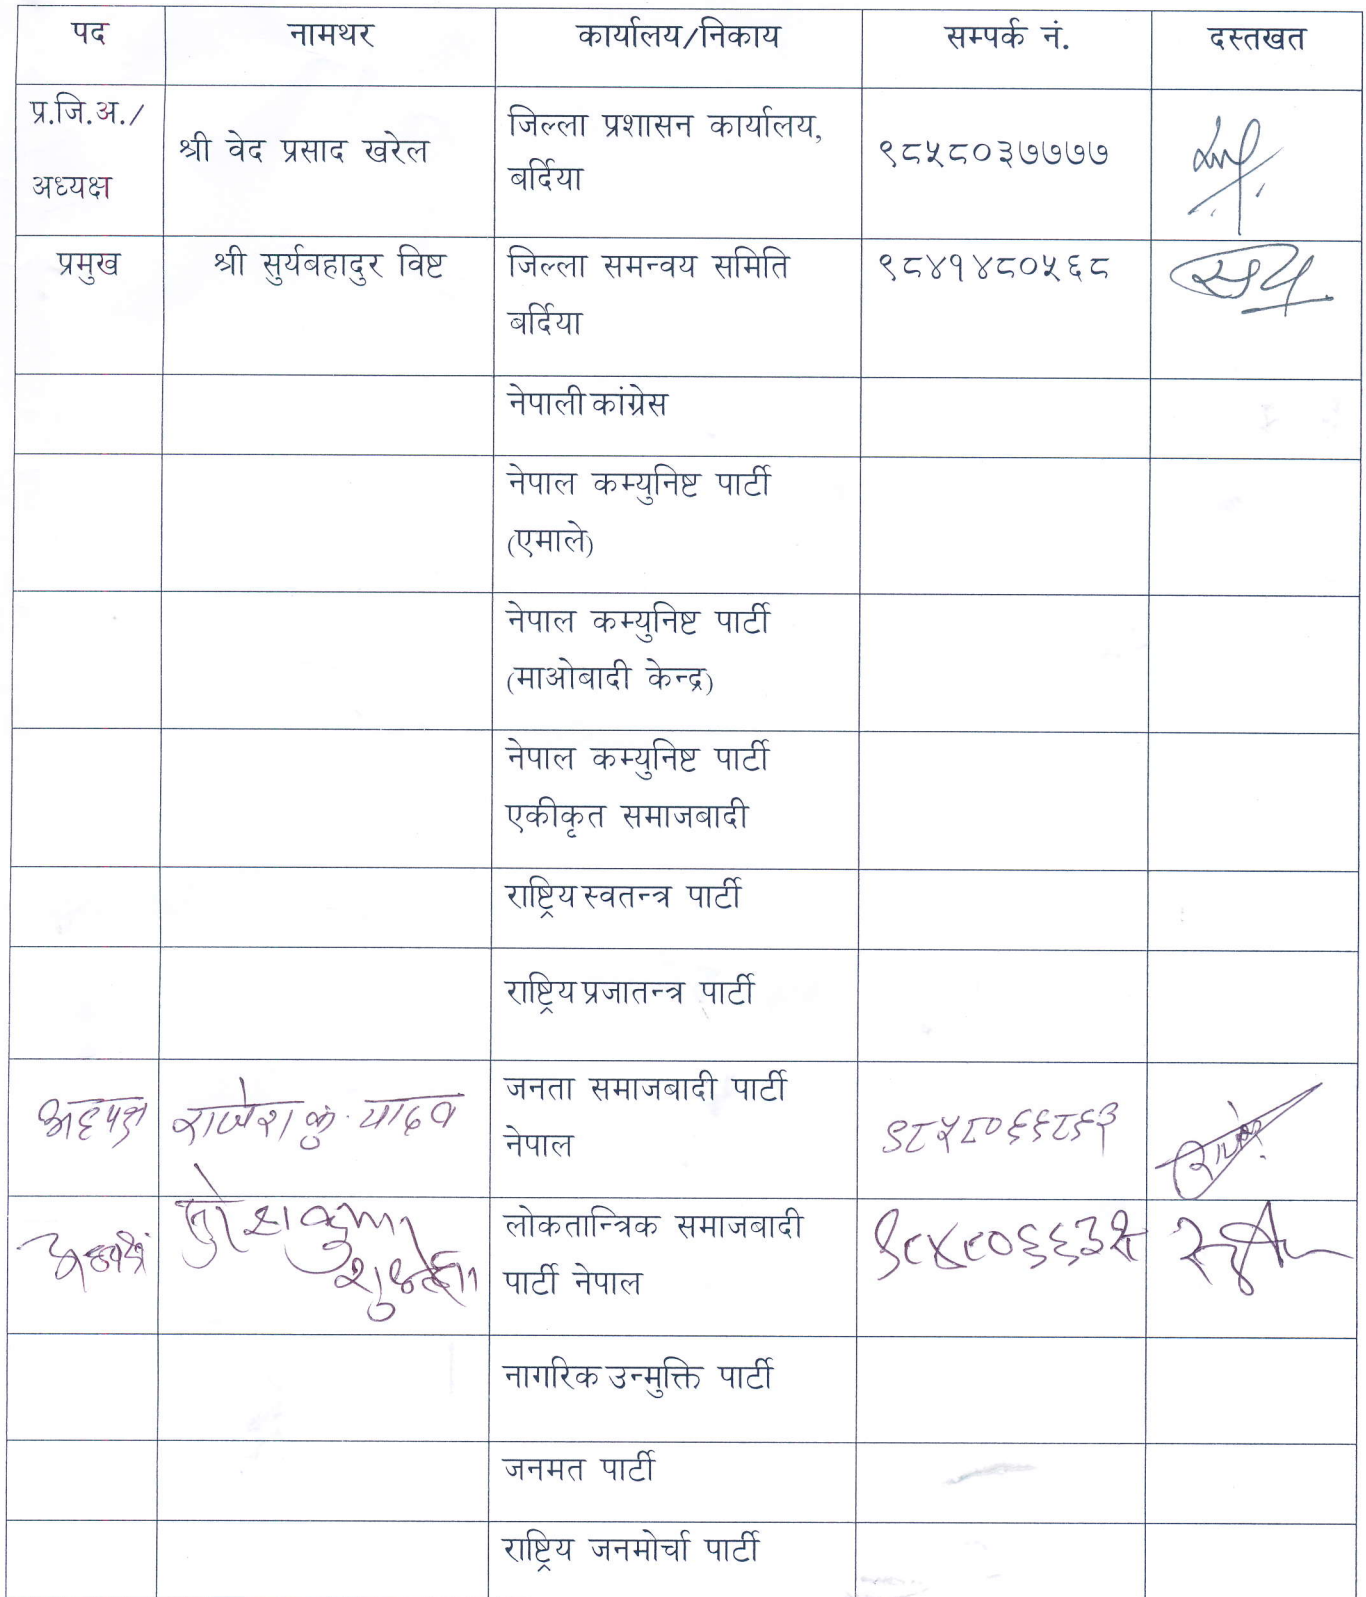 पद नामथर कार्यालय/निकाय सम्पर्क नं. दस्तखत
प्र.जि.अ./
अध्यक्ष
श्री वेद प्रसाद खरेल
जिल्ला प्रशासन कार्यालय,
बर्दिया
९८५८०३७७७७
प्रमुख श्री सुर्यबहादुर विष्ट जिल्ला समन्वय समिति ९८४१४८०५६८
बर्दिया
नेपाली कांग्रेस
नेपाल कम्युनिष्ट पार्टी
(एमाले)
नेपाल कम्युनिष्ट पार्टी
(माओबादी केन्द्र)
नेपाल कम्युनिष्ट पार्टी
एकीकृत समाजबादी
राष्ट्रिय स्वतन्त्र पार्टी
राष्ट्रिय प्रजातन्त्र पार्टी
अध्यक्ष राजेश कु. यादव
जनता समाजबादी पार्टी
नेपाल
९८५८०६६८६३
लोकतान्त्रिक समाजबादी
पार्टी नेपाल
नागरिक उन्मुक्ति पार्टी
जनमत पार्टी
राष्ट्रिय जनमोर्चा पार्टी